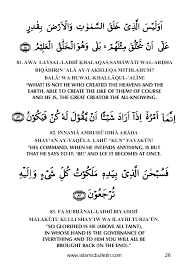 أَوَلَيْسَ الَّذِي خَلَقَ السَّمٰوٰتِ وَالْأَرْضَ بِقٰدِرٍ
عَلٰٓى أَنْ يَّخْلُقَ مِثْلَهُمْ ۚ بَلٰى وَهُوَ الْخَلّٰقُ الْعَلِيْمُ
81. AWA LAYSAL-LADHĪ KHALAQAS-SAMĀWĀTI WAL-ARḌHA
BIQĀDIRIN ʿALĀ AY-YAKHLUQA MITHLAHUM?
BALĀ! WA HUWAL-KHALLĀQUL-ʿALĪM!
"WHAT! IS NOT HE WHO CREATED THE HEAVENS AND THE
EARTH, ABLE TO CREATE THE LIKE OF THEM? OF COURSE
AND HE IS, THE GREAT CREATOR THE ALL-KNOWING.
إِنَّمَآ أَمْرُهٗٓ إِذَآ أَرَادَ شَيْئًا أَنْ يَّقُوْلَ لَهٗ كُنْ فَيَكُوْنُ
82. INNAMĀ AMRUHŪ IDHĀ ARĀDA
SHAYʾAN AY-YAQŪLA LAHŪ "KUN" FAYAKŪN!
"HIS COMMAND, WHEN HE INTENDS ANYTHING, IS BUT
THAT HE SAYS TO IT: 'BE!' AND LO! IT BECOMES AT ONCE.
فَسُبْحٰنَ الَّذِيْ بِيَدِهٖ مَلَكُوْتُ كُلِّ شَيْءٍ وَّإِلَيْهِ
تُرْجَعُوْنَ
83. FA SUBḤĀNAL-LADHĪ BIYADIHĪ
MALAKŪTU KULLI SHAYʾIW WA ILAYHI TURJAʿŪN.
"SO GLORIFIED IS HE (ABOVE ALL TAINT),
IN WHOSE HAND IS THE GOVERNANCE OF
EVERYTHING AND TO HIM YOU WILL ALL BE
BROUGHT BACK (IN THE HEREAFTER)."
www.islamicbulletin.com 26